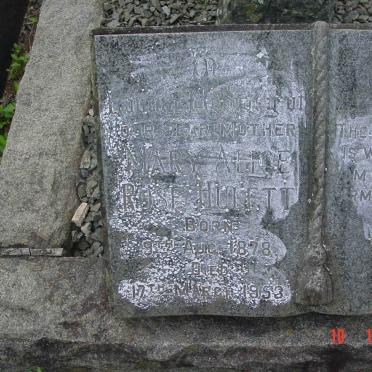 In
Loving Memory of
Our Dear Mother
Mary Allie
Rose Hulett
Born
9th Aug. 1878
Died
17th March 1953
10